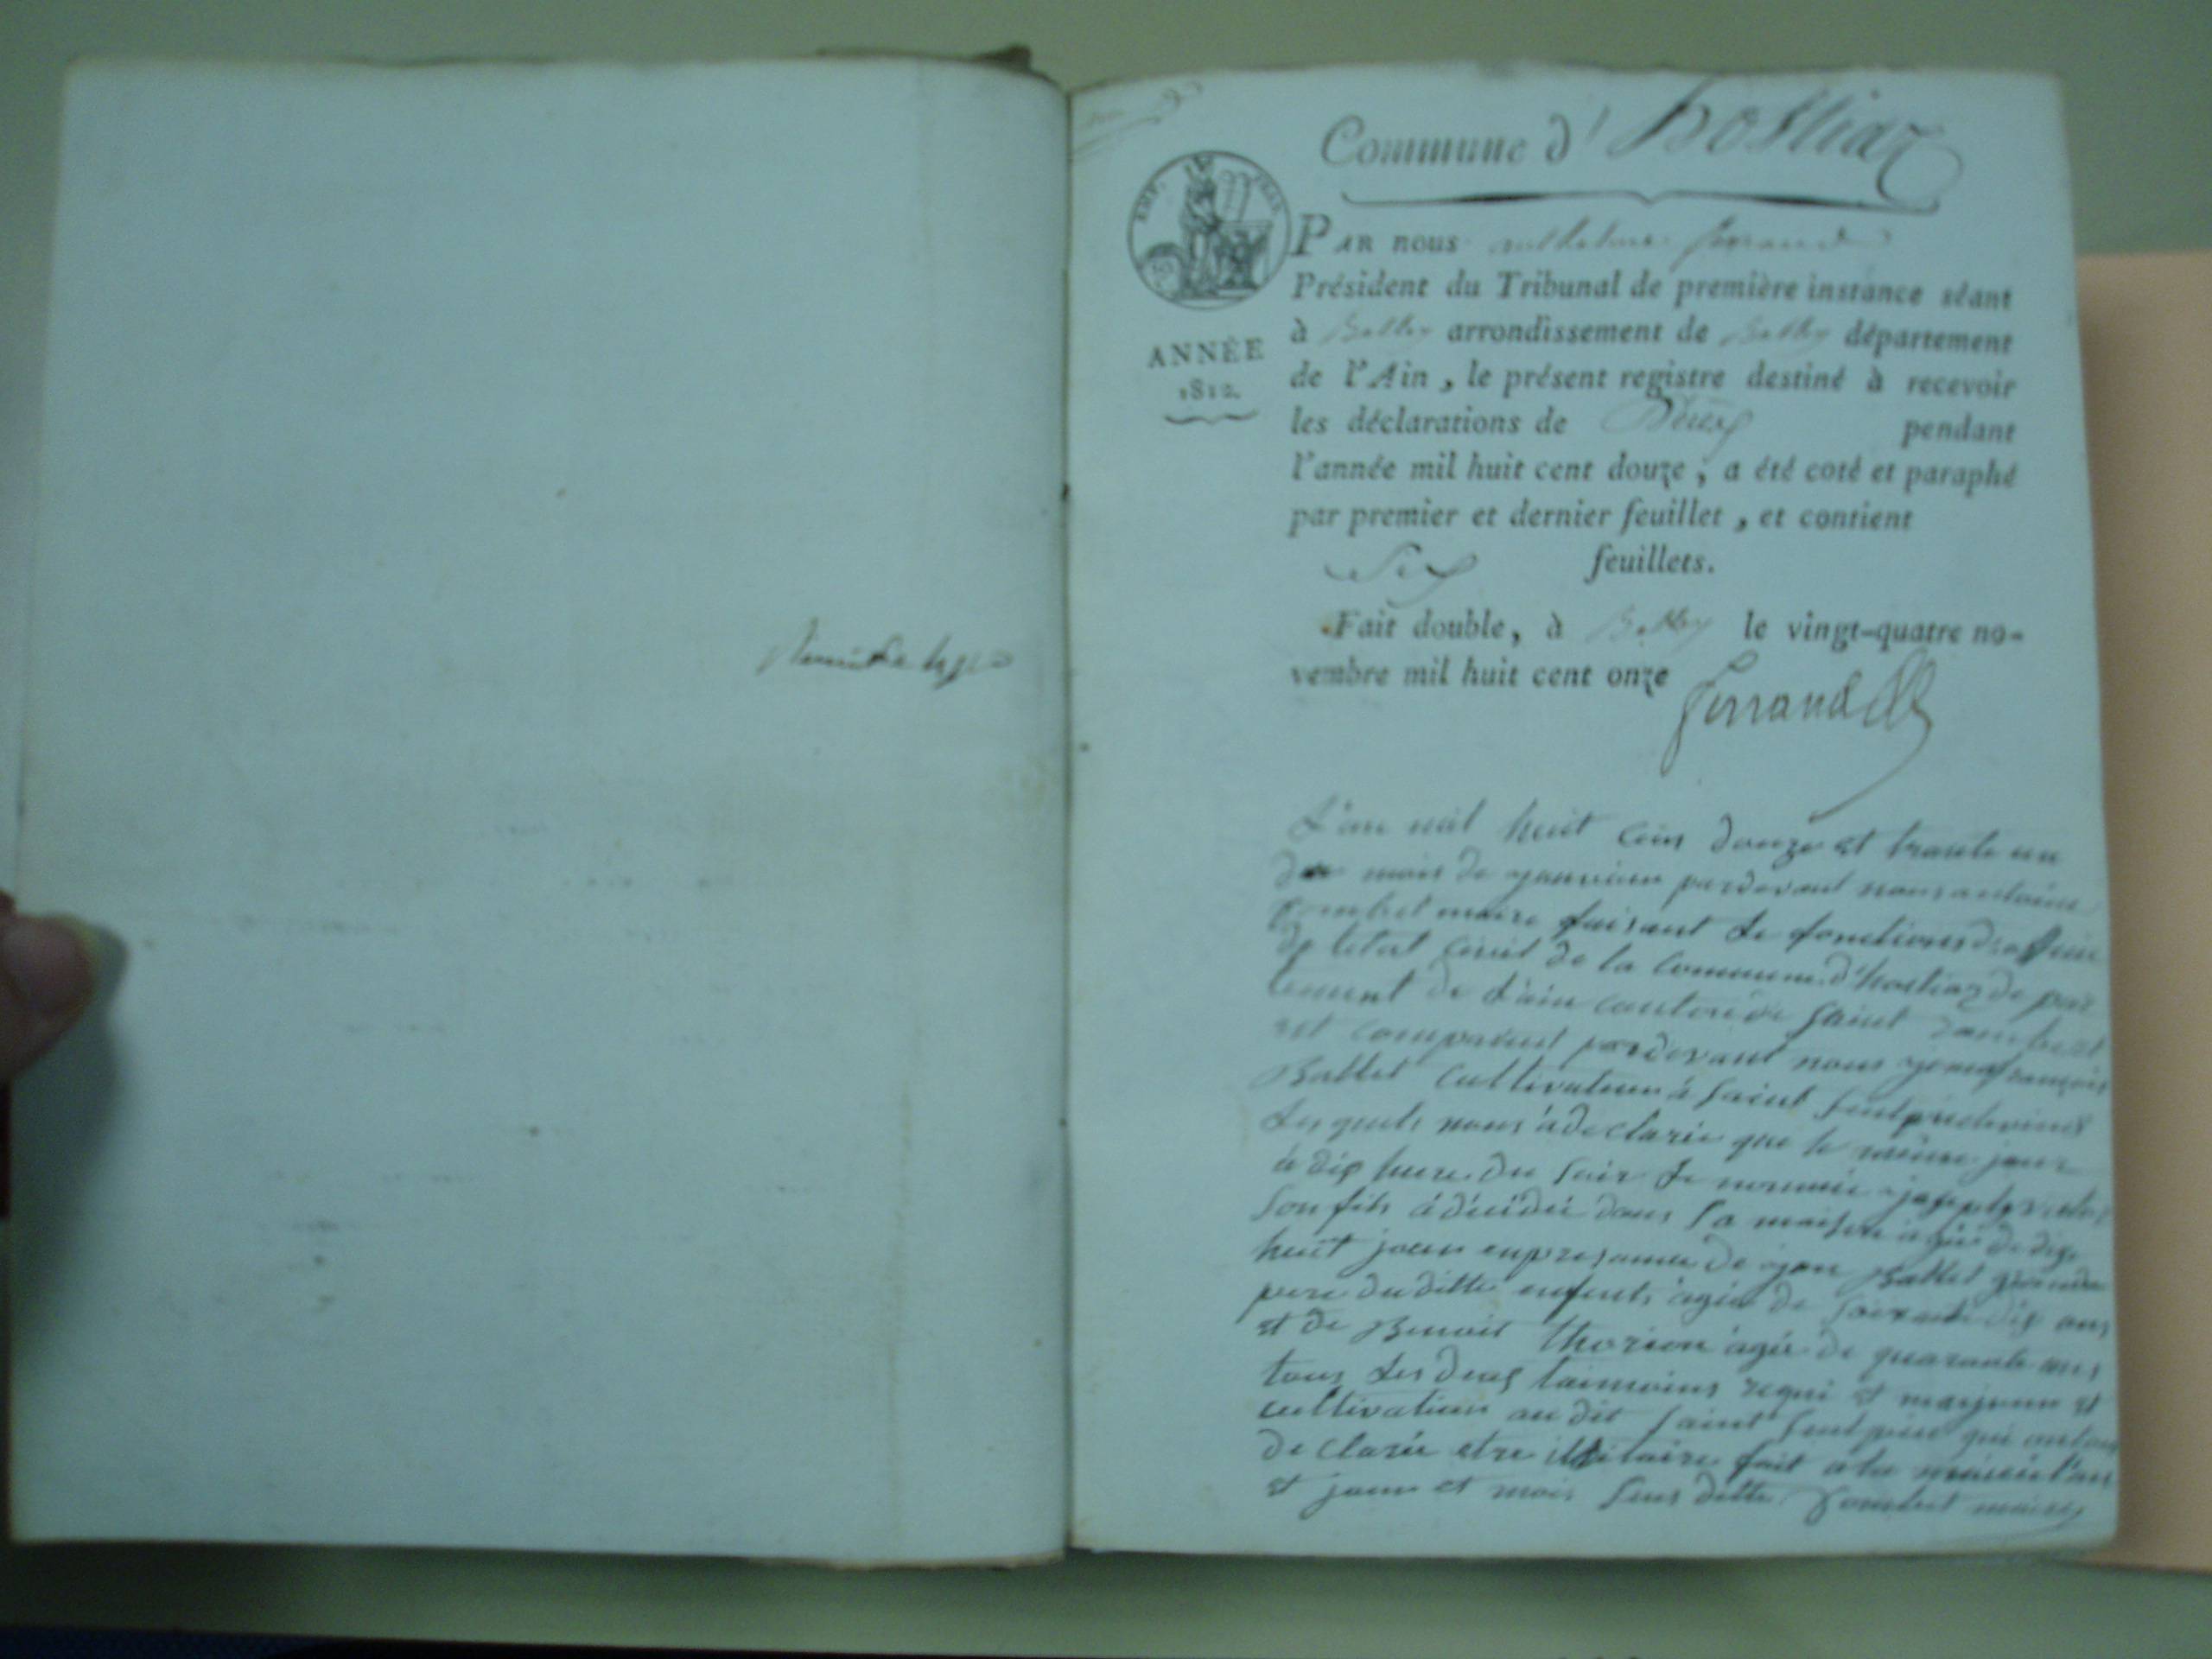 Commune d'hostiaz
EMP. FRAN.
PAR nous Ferrand
Président du Tribunal de première instance séant
à Belley arrondissement de Belley département
ANNÉE
1812.
de l'Ain, le présent registre destiné à recevoir
les déclarations de Décès pendant
l'année mil huit cent douze, a été coté et paraphé
par premier et dernier feuillet, et contient
Six feuillets.
Fait double, à Belley le vingt-quatre no-
vembre mil huit cent onze
Ferrand
L'an mil huit cens douze et trante un
du mois de pardevant nous antoine
maire faisant de fonctions
de letat civil de la commune d'hostiaz de par
tement de d'ain canton de saint
est comparent pardevant nous
Ballet cultivateur à saint
Lesquels nous a declarée que le même jour
à dix hure du soir Le nommée
son fils à déceidée dans sa maison agée de dix
huit jours enpresance de Ballet
pere du ditte enfents agée de soixante dix ans
et de Benoit thorion agée de quarante ans
tous Les deux taimoins requi et majeure et
cultivateur au dit saint qui ont
declarée etre illitaire fait a la mairie l'an
et jour et mois sus ditte maire